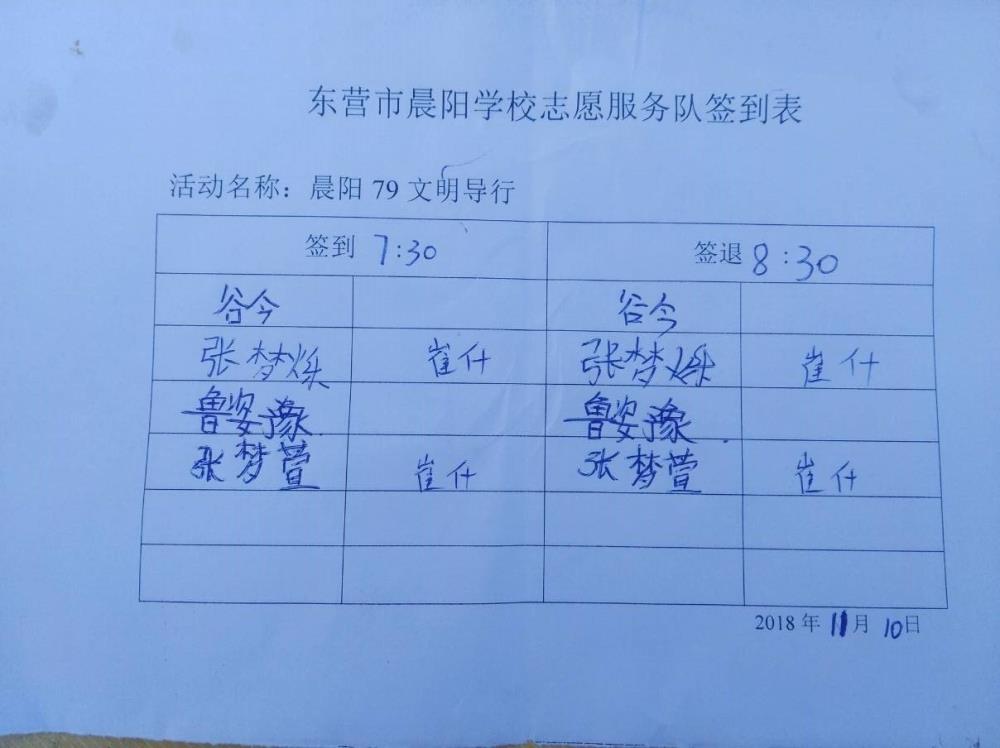 东营市晨阳学校志愿服务队签到表
活动名称：晨阳 79 文明导行
签到 7:30 签退 8:30
谷今 谷今
张梦烁 崔仟 张梦烁 崔仟
鲁姿豫 鲁姿豫
张梦萱 崔仟 张梦萱 崔仟
2018 年 11 月 10 日